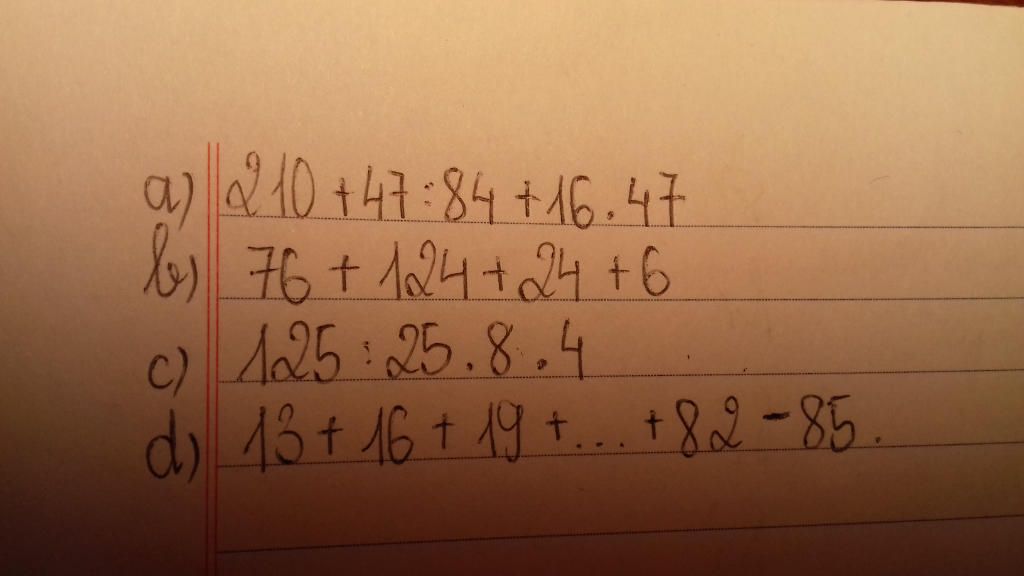 a) 210 + 47 : 84 + 16 . 47
b) 76 + 124 + 24 + 6
c) 125 : 25 . 8 . 4
d) 13 + 16 + 19 + ... + 82 - 85 .